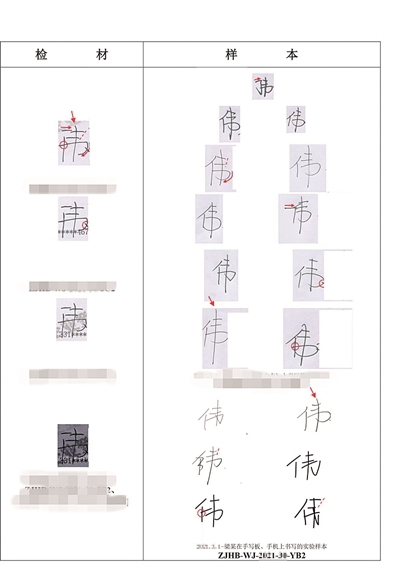 检 材
样 本
伟
伟
伟
伟
伟
伟 伟
伟 伟
伟 伟
伟 伟
伟 伟
伟 伟
伟 伟
伟 伟
2021.3.1-梁某在手写板、手机上书写的实验样本
ZJHB-WJ-2021-30-YB2